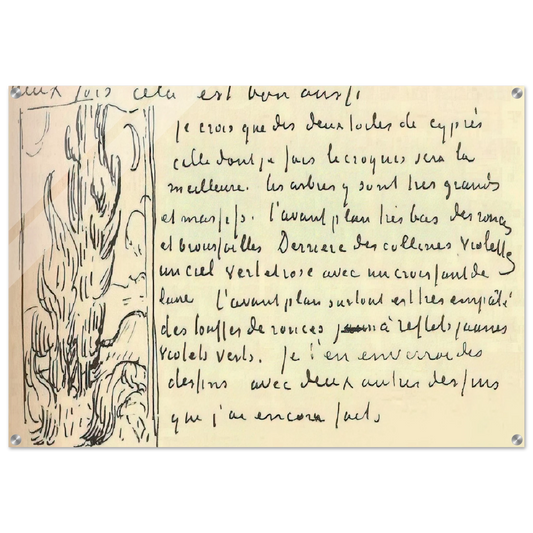 deux fois cela est bon aussi
je crois que des deux toiles de cyprès
celle dont je fais le croquis sera la
meilleure. les arbres y sont très grands
et massifs. l'avant plan très bas des ronces
et broussailles Derriere des collines violettes
un ciel vert et rose avec un croissant de
lune l'avant plan surtout est très empâté
des touffes de ronces à reflets jaunes
violets verts. je t'en enverrai des
dessins avec deux autres dessins
que j'ai encore faits